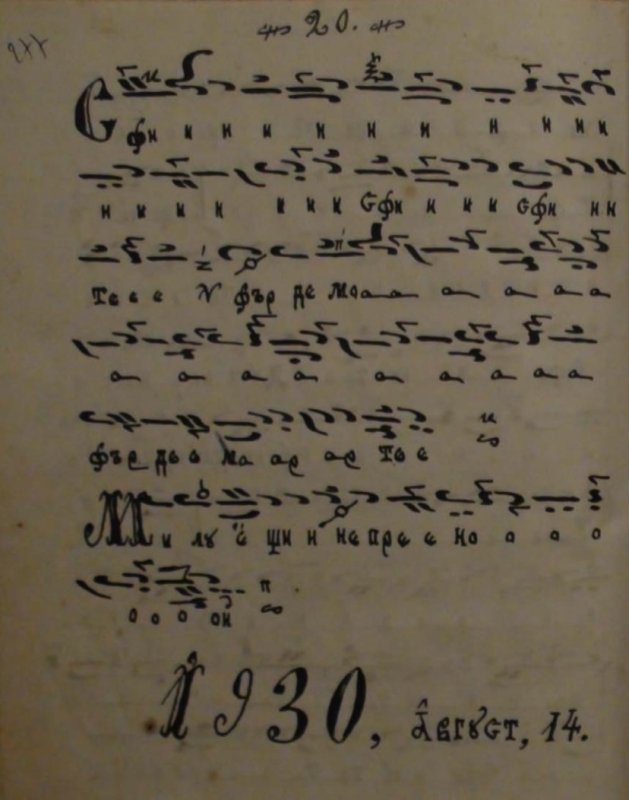 20.
Сфи и и и и и и и и и и
и и и и и и и Сфи и и и Сфи и и
Те е е N фър де Моа а а а а а
а а а а а а а а а
фър де е мо ар ар те е
Ми лꙋ ё щи и не пре е но о о о
о о о ой
1930, Авгꙋст, 14.